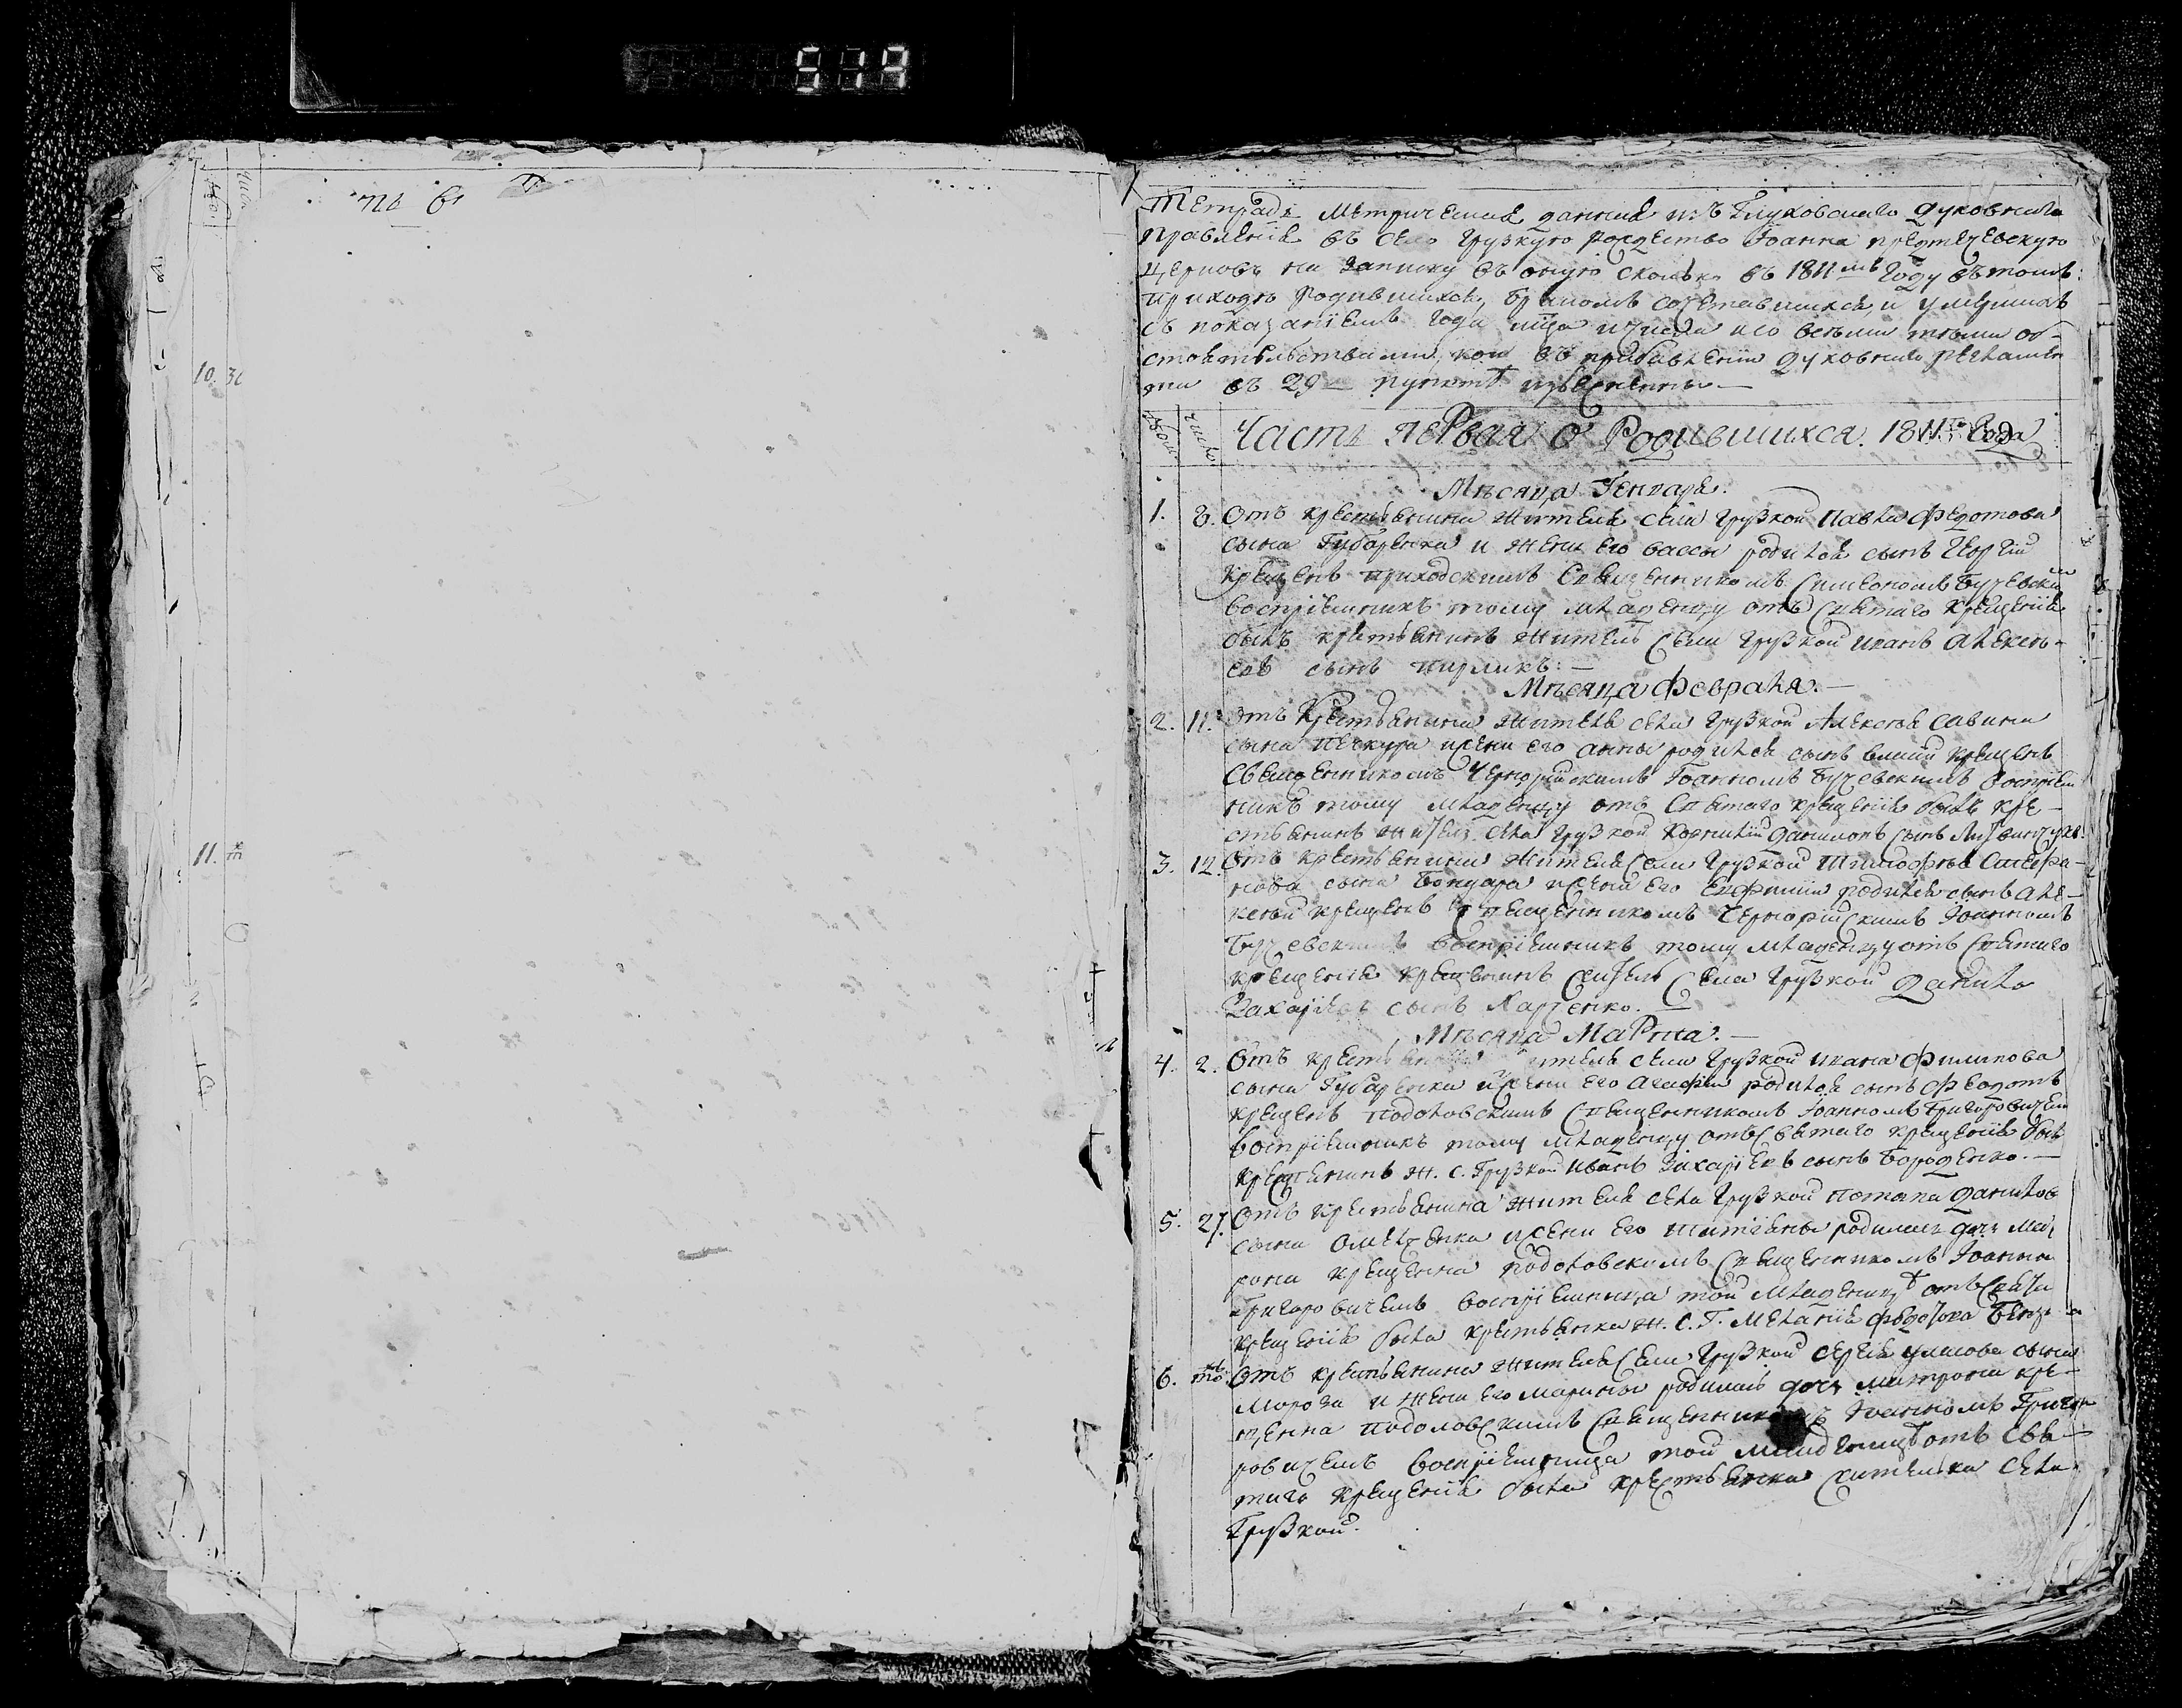 517
10. 30
11.
Тетрадь метрическая данная изъ Глуховскаго духовнаго
правленія въ село Грузкую рождество Іоанна предтечевскую
церковь на записку въ оную сколько въ 1811мъ Году въ томъ:
приходѣ родившихся, бракомъ сочетавшихся, и умершихъ
съ показаніемъ года мца и числа и со всѣми тѣми об-
стоятельствами, кои въ прибавленіи духовнаго регламен
та въ 29 пунктѣ изъяснены.—
Число.
Часть первая о Родившихся. 1811го Года
Мѣсяца Генваря.
1. 8. Отъ крестьянина жителя села Грузкой Павла Федотова
сына Губаренка и жены его Вассы родился сынъ Георгій
крещенъ приходскимъ Священникомъ Симеономъ Бучевским
воспріемникъ тому младенцу отъ Святаго крещенія
былъ крестьянинъ житель села Грузкой Иванъ Алексѣ-
евъ сынъ :—
Мѣсяца Февраля.—
2. 11. Отъ Крестьянина жителя села Грузкой Алексѣя Савина
сына Печкура и жены его Анны родился сынъ крещенъ
Священникомъ Чернорійскимъ Іоанномъ Бучевскимъ воспріем
никъ тому младенцу отъ Святаго крещенія былъ кре-
стьянинъ житель села Грузкой Корнилій Даниловъ сынъ
3. 12. Отъ крестьянина жителя села Грузкой Тимофѣя Стефа-
нова сына Бондара и жены его Евфиміи родился сынъ Але-
ксѣй крещенъ Священникомъ Чернорійскимъ Іоанномъ
Бучевскимъ воспріемникъ тому младенцу отъ Святаго
крещенія крестьянинъ житель села Грузкой Данило
Захаріевъ сынъ Карпенко.
Мѣсяца Марта.—
4. 2. Отъ крестьянина жителя села Грузкой Ивана Филипова
сына Губаренка и жены его Агафіи родился сынъ Федотъ
крещенъ подоловскимъ Священникомъ Іоанномъ Григоровичем
воспріемникъ тому младенцу отъ Святаго крещенія былъ
крестьянинъ ж. с. Грузкой Иванъ Захаріевъ сынъ Бороденко.—
5. 27. Отъ крестьянина жителя села Грузкой Потапа Данилов
сына и жены его Татіяны родилась дочь Мат
рона крещенна подоловскимъ Священникомъ Іоанном
Григоровичемъ воспріемница той младеницѣ отъ Святаго
крещенія была крестьянка ж. с. Г. Меланія Федотова
6. Отъ крестьянина жителя села Грузкой Сергѣя сына
Мороза и жены его Марины родилась дочь Матрона кре-
щенна подоловскимъ Священникомъ Іоанномъ Григо
ровичемъ воспріемница той младеницѣ отъ Свя-
таго крещенія была крестьянка жителька села
Грузкой.